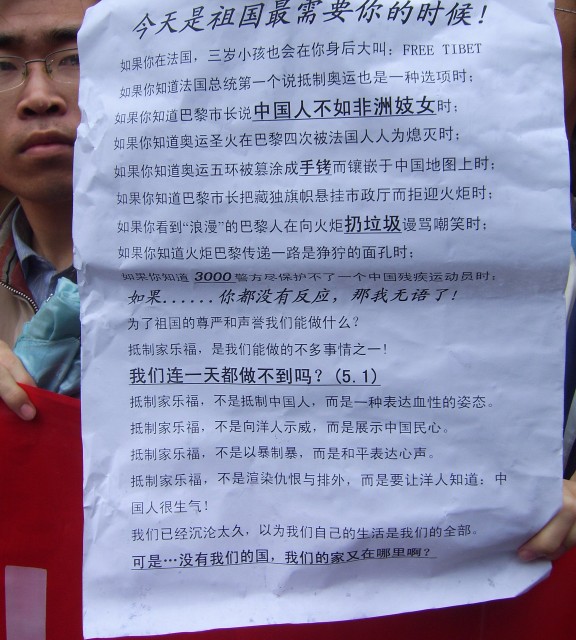 今天是祖国最需要你的时候!
如果你在法国，三岁小孩也会在你身后大叫: FREE TIBET
如果你知道法国总统第一个说抵制奥运也是一种选项时;
如果你知道巴黎市长说中国人不如非洲妓女时;
如果你知道奥运圣火在巴黎四次被法国人人为熄灭时;
如果你知道奥运五环被篡涂成手铐而镶嵌于中国地图上时;
如果你知道巴黎市长把藏独旗帜悬挂市政厅而拒迎火炬时;
如果你看到“浪漫”的巴黎人在向火炬扔垃圾谩骂嘲笑时;
如果你知道火炬巴黎传递一路是狰狞的面孔时;
如果你知道 3000警方尽保护不了一个中国残疾运动员时;
如果......你都没有反应，那我无语了!
为了祖国的尊严和声誉我们能做什么?
抵制家乐福，是我们能做的不多事情之一!
我们连一天都做不到吗? (5.1)
抵制家乐福，不是抵制中国人，而是一种表达血性的姿态。
抵制家乐福，不是向洋人示威，而是展示中国民心。
抵制家乐福，不是以暴制暴，而是和平表达心声。
抵制家乐福，不是渲染仇恨与排外，而是要让洋人知道: 中
国人很生气!
我们已经沉沦太久，以为我们自己的生活是我们的全部。
可是…没有我们的国，我们的家又在哪里啊?